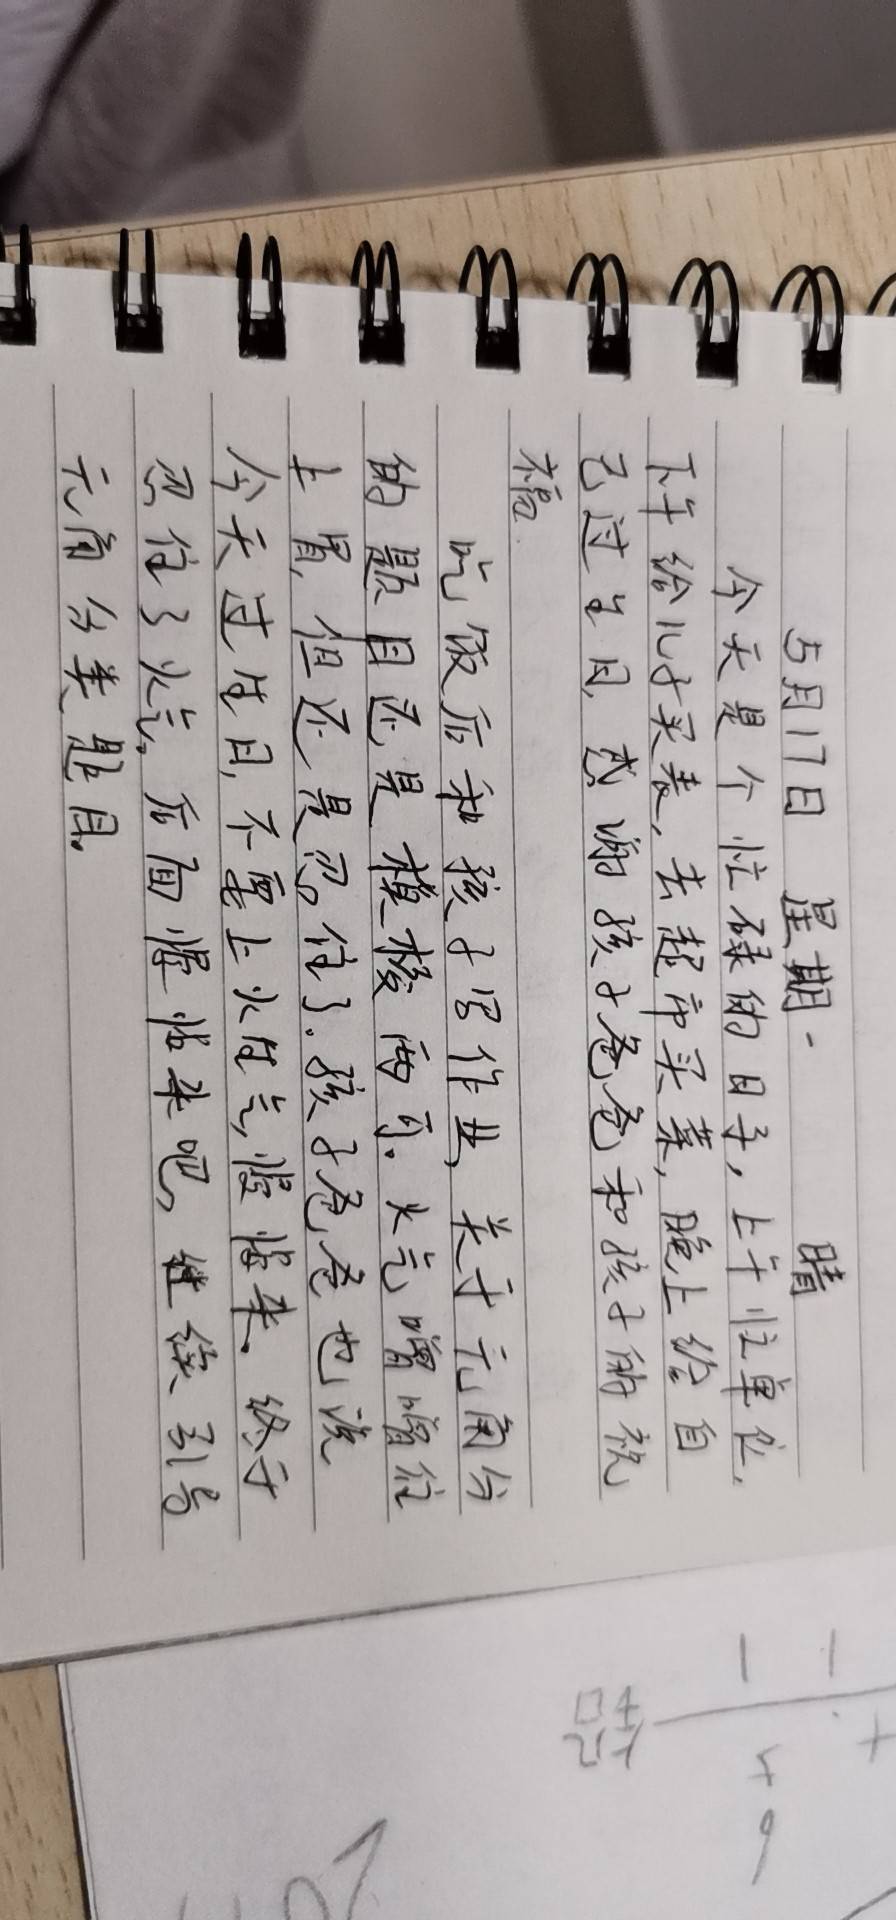 5月17日 星期一 晴
今天是个忙碌的日子,上午忙单位,
下午给儿子买表,去超市买菜,晚上给自
己过生日,感谢孩子爸爸和孩子的祝
福.
吃饭后和孩子写作业,关于元角分
的题目还是模棱两可.火气噌噌往
上冒,但还是忍住了.孩子爸爸也说
今天过生日,不要上火生气,慢慢来.终于
忍住了火气。后面慢慢来吧,继续引导
元角分类题目。